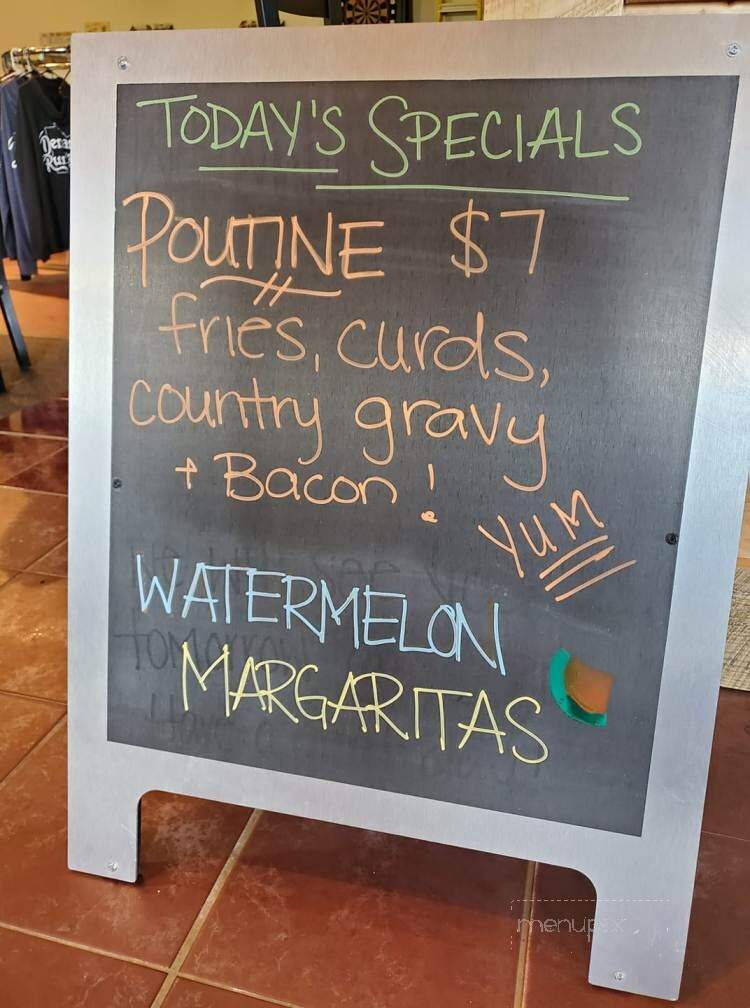 TODAY'S SPECIALS
POUTINE $7
fries, curds,
country gravy
+ Bacon!
YUM
WATERMELON
MARGARITAS
menupix